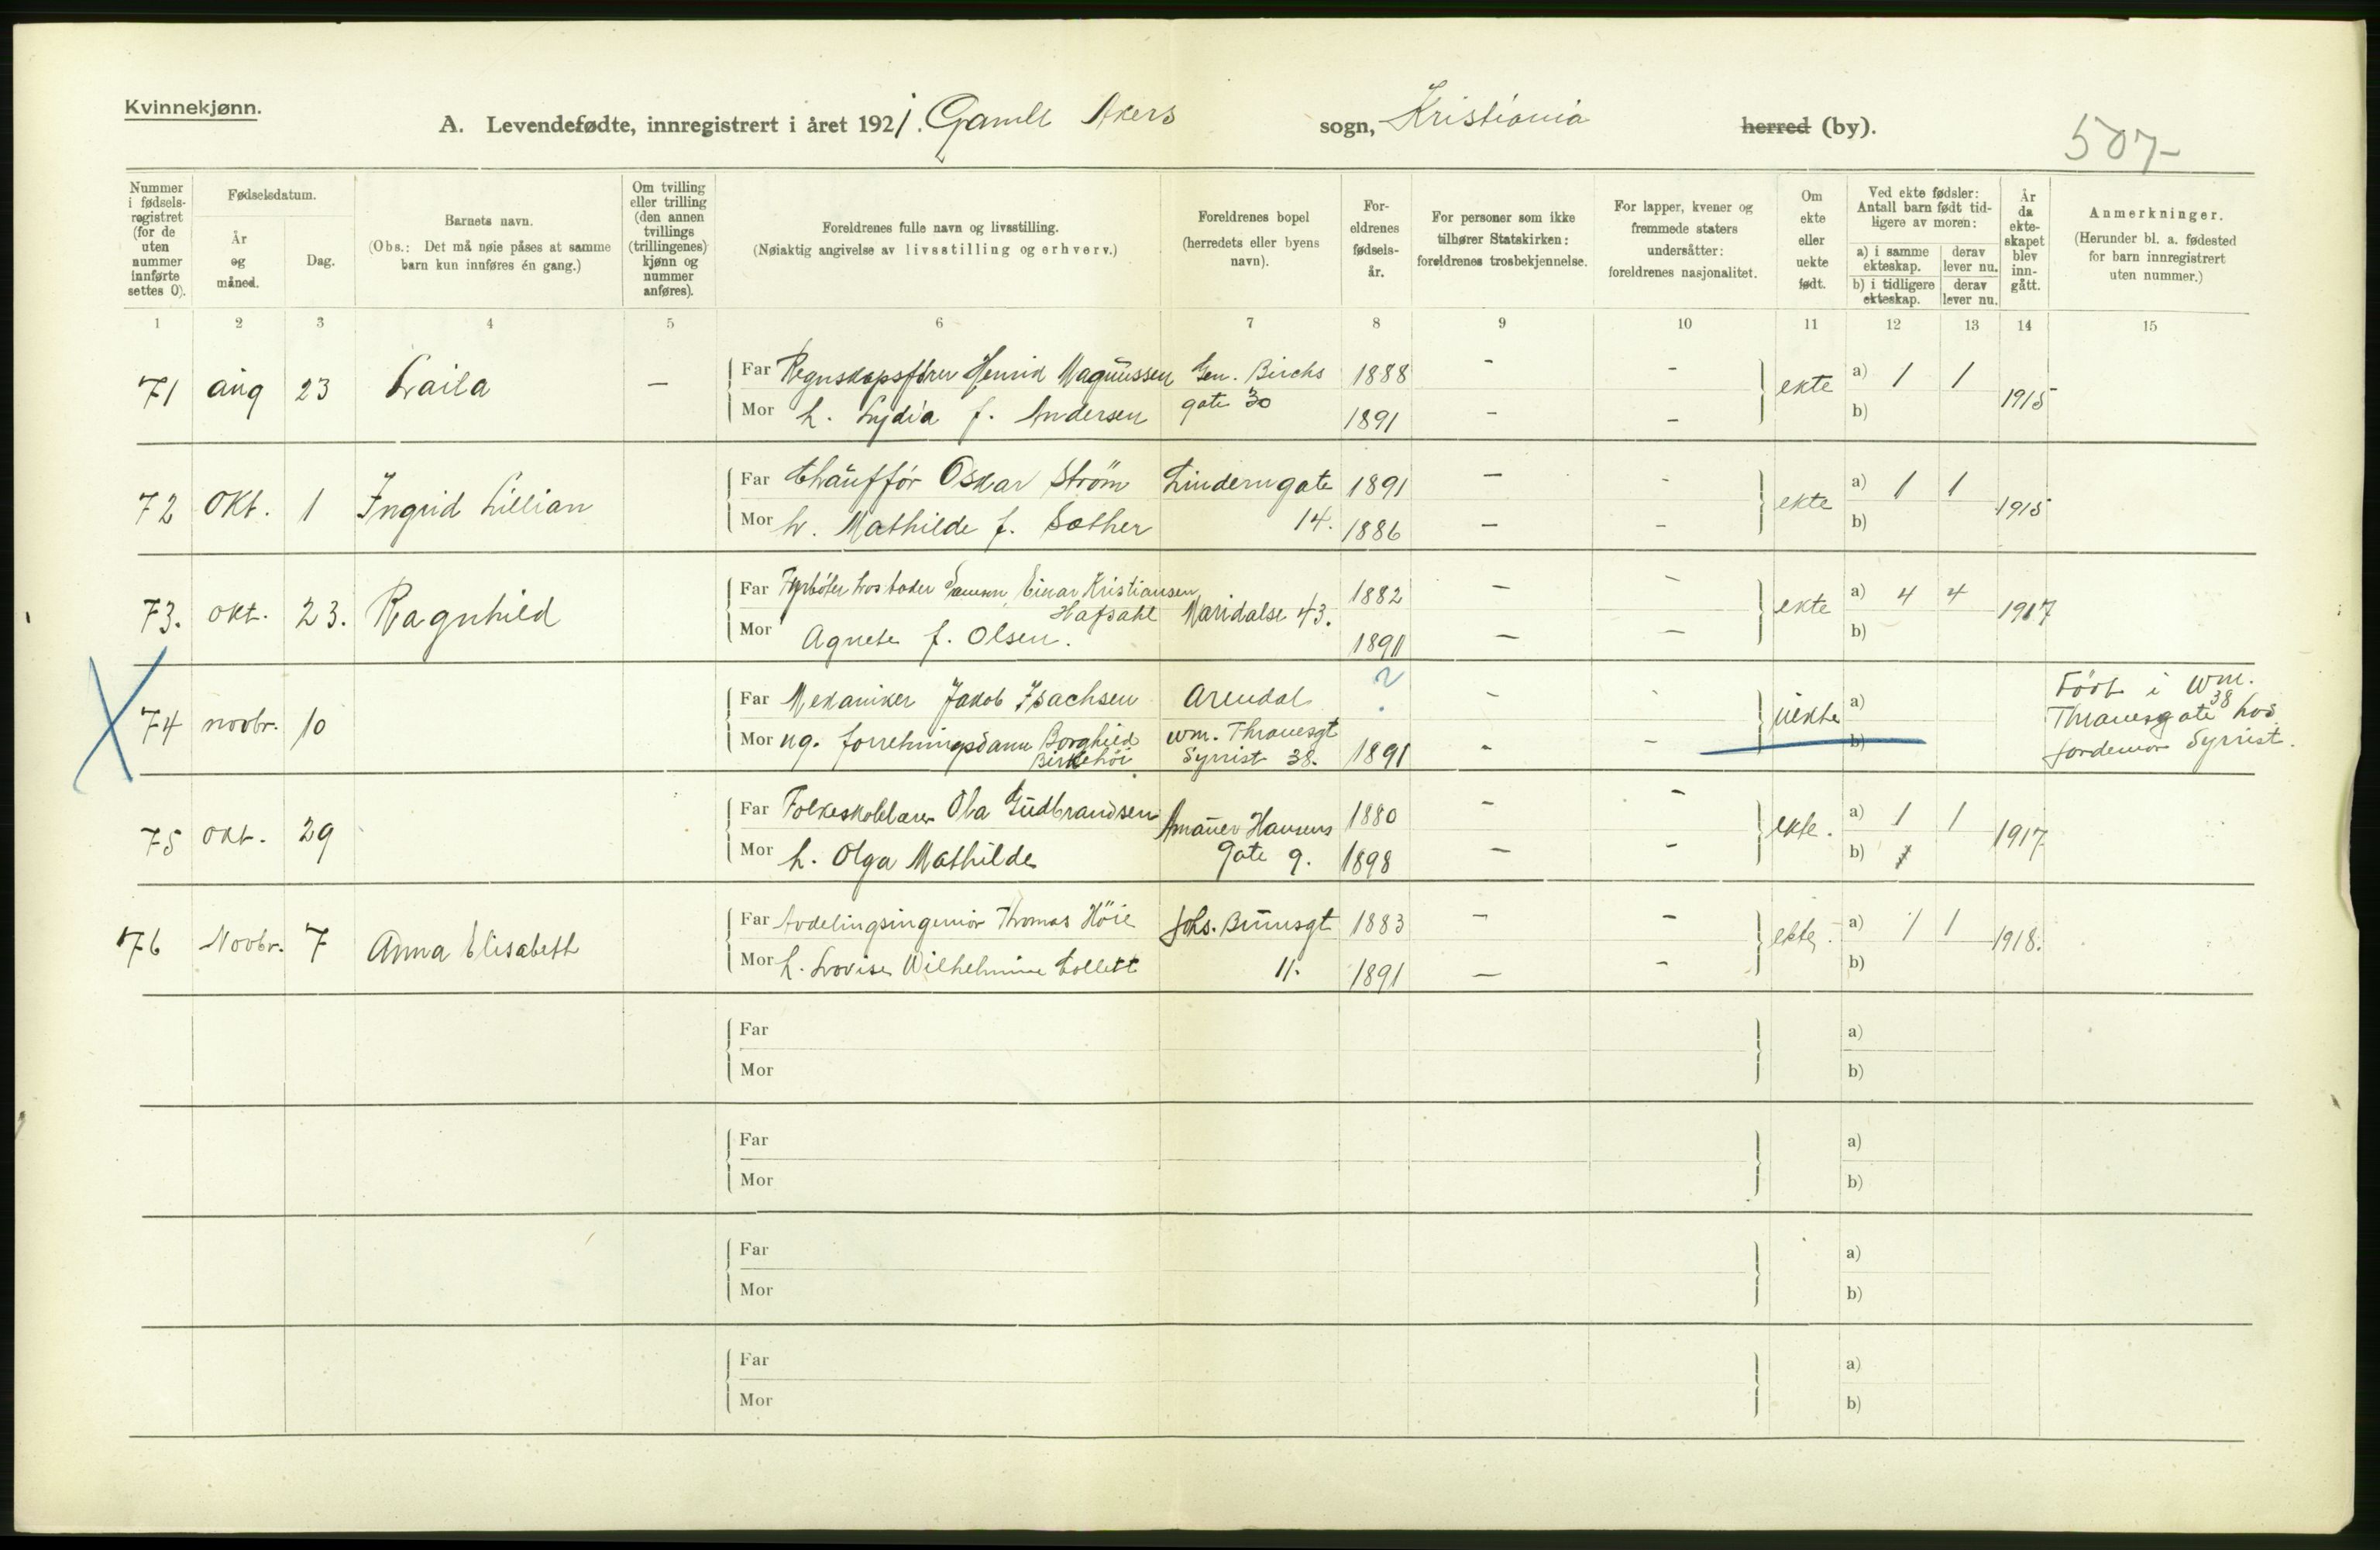 Kvinnekjønn.
A. Levendefødte, innregistrert i året 1921. Gamle Akers sogn, Kristiania herred (by).
507-
Nummer i fødsels-registret (for de uten nummer innførte settes 0).
Fødselsdatum.
År og måned.
Dag.
Barnets navn.
(Obs.: Det må nøie påses at samme barn kun innføres én gang.)
Om tvilling eller trilling (den annen tvillings (trillingenes) kjønn og nummer anføres).
Foreldrenes fulle navn og livsstilling.
(Nøiaktig angivelse av livsstilling og erhverv.)
Foreldrenes bopel (herredets eller byens navn).
For-eldrenes fødsels-år.
For personer som ikke tilhører Statskirken: foreldrenes trosbekjennelse.
For lapper, kvener og fremmede staters undersåtter: foreldrenes nasjonalitet.
Om ekte eller uekte født.
Ved ekte fødsler: Antall barn født tid-ligere av moren:
a) i samme ekteskap.
derav lever nu.
b) i tidligere ekteskap.
derav lever nu.
År da ekte-skapet blev inn-gått.
Anmerkninger.
(Herunder bl. a. fødested for barn innregistrert uten nummer.)
1 2 3 4 5 6 7 8 9 10 11 12 13 14 15
71 aug 23 Laila — Far Regnskapsfører Henrik Magnussen Gen. Birchs 1888 - - ekte a) 1 1 1915
Mor h. Lydia f. Andersen gate 30 1891 - - b)
72 Okt. 1 Ingrid Lillian Far Chauffør Oskar Strøm Linderngate 1891 - - ekte a) 1 1 1915
Mor h. Mathilde f. Sæther 14. 1886 - - b)
73. okt. 23. Ragnhild Far Fyrbøter Einar Kristiansen Hafsahl Maridalsv 43. 1882 - - ekte a) 4 4 1917
Mor Agnete f. Olsen. 1891 - - b)
74 novbr. 10 Far Mekaniker Jakob Isachsen Arendal ? - - uekte a)
Mor ug. forretningsdame Borghild Birkehöi wm. Thranesgt Syrrist 38. 1891 - - b)
Född i Wm. Thranesgate 38 hos jordemor Syrrist.
75 Okt. 29 Far Folkeskolelærer Ola Gudbrandsen Amauer Hansens 1880 - - ekte. a) 1 1 1917
Mor h. Olga Mathilde gate 9. 1898 - - b)
76 Novbr. 7 Anna Elisabeth Far Avdelingsingeniør Thomas Höie Johs. Brunsgt 1883 - - ekte. a) 1 1 1918.
Mor h. Lovise Wilhelmine Collett 11. 1891 - - b)
Far a)
Mor b)
Far a)
Mor b)
Far a)
Mor b)
Far a)
Mor b)